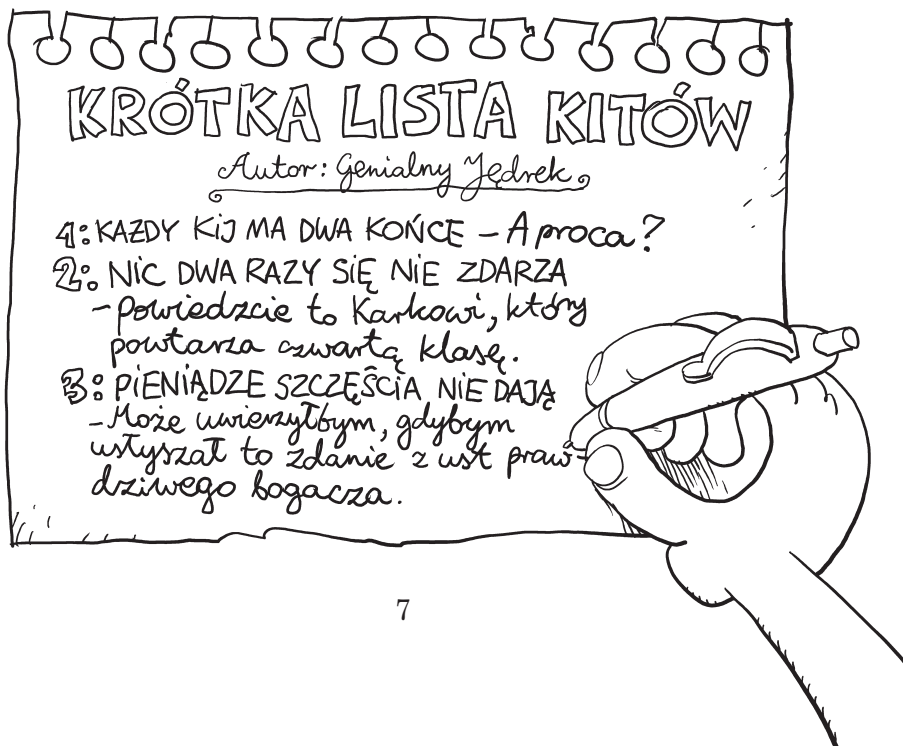 KRÓTKA LISTA KITÓW
Autor: Genialny Jędrek
1: KAŻDY KIJ MA DWA KOŃCE – A proca?
2: NIC DWA RAZY SIĘ NIE ZDARZA
– powiedzcie to Karkowi, który
powtarza czwartą klasę.
3: PIENIĄDZE SZCZĘŚCIA NIE DAJĄ
– Może uwierzyłbym, gdybym
usłyszał to zdanie z ust praw-
dziwego bogacza.
7